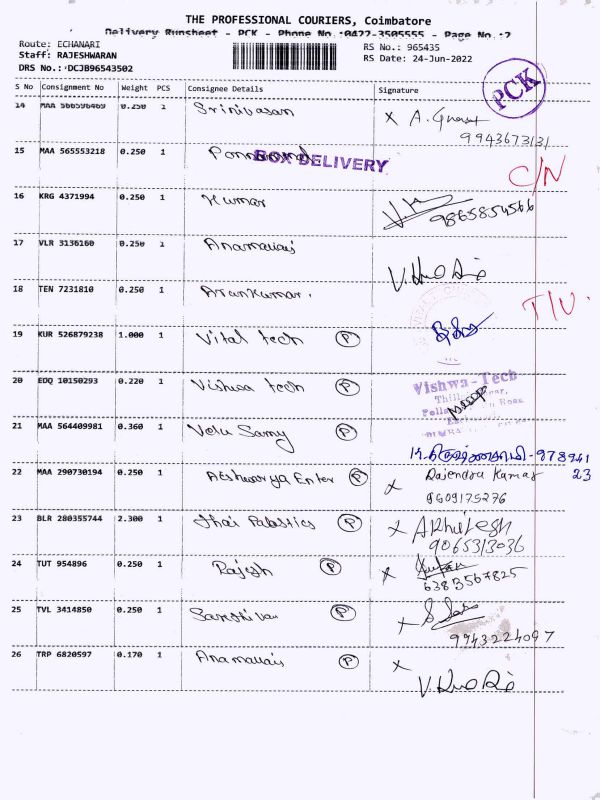 THE PROFESSIONAL COURIERS, Coimbatore
Delivery Runsheet - PCK - Phone No.:0422-3505555 - Page No.:2
Route: ECHANARI
Staff: RAJESHWARAN
DRS No.: DCJB96543502
RS No.: 965435
RS Date: 24-Jun-2022
PCK
S No Consignment No Weight PCS Consignee Details Signature
14 MAA 566596469 0.250 1 Srinivasan X A.
9943673131
15 MAA 565553218 0.250 1 BOX DELIVERY C/N
16 KRG 4371994 0.250 1 Kumar 9865854566
17 VLR 3136160 0.250 1 Anamalais
18 TEN 7231810 0.250 1 Arunkumar. T/N.
19 KUR 526879238 1.000 1 Vital tech P
20 EDQ 10150293 0.220 1 Vishwa tech P Vishwa-Tech
21 MAA 564409981 0.360 1 Velu Samy P 978941
22 MAA 290730194 0.250 1 Aishwarya Enter P X Rajendra Kumar 23
9609175276
23 BLR 280355744 2.300 1 Thai P X Akhilesh
9065313036
24 TUT 954896 0.250 1 Rajesh P X
6383567825
25 TVL 3414850 0.250 1 P X
9943224097
26 TRP 6820597 0.170 1 Anamalais P X